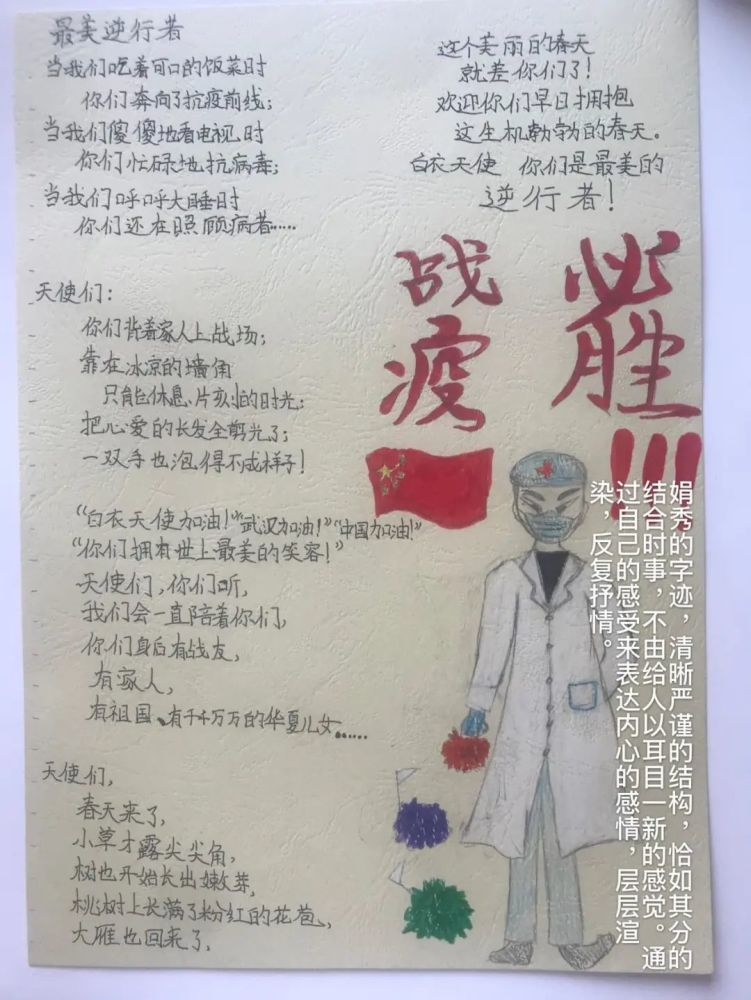 最美逆行者
当我们吃着可口的饭菜时
你们奔向了抗疫前线；
当我们傻傻地看电视时
你们忙碌地抗病毒；
当我们呼呼大睡时
你们还在照顾病者……
天使们：
你们背着家人上战场；
靠在冰凉的墙角
只能休息片刻的时光；
把心爱的长发全剪光了；
一双手也泡得不成样子！
“白衣天使加油！”“武汉加油！”“中国加油！”
“你们拥有世上最美的笑容！”
天使们，你们听，
我们会一直陪着你们，
你们身后有战友，
有家人，
有祖国、有千千万万的华夏儿女……
天使们，
春天来了，
小草才露尖尖角，
树也开始长出嫩芽，
桃树上长满了粉红的花苞，
大雁也回来了，
这个美丽的春天
就差你们了！
欢迎你们早日拥抱
这生机勃勃的春天。
白衣天使 你们是最美的
逆行者！
战疫
必胜!!!
娟秀的字迹，清晰严谨的结构，恰如其分的
结合时事，不由给人以耳目一新的感觉。通
过自己的感受来表达内心的感情，层层渲
染，反复抒情。